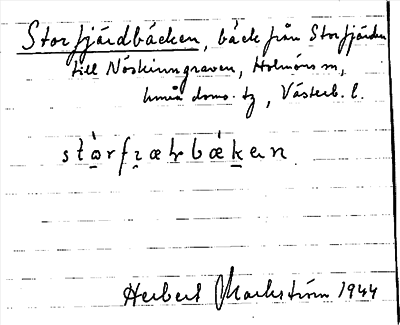 Storfjärdbäcken, bäck från Storfjärden
till Nörskinngraven, Holmöns sn,
Umeå doms. tg, Västerb. l.
stὰrfɪæḥbæ̀ḳɐn
Herbert Markström 1944